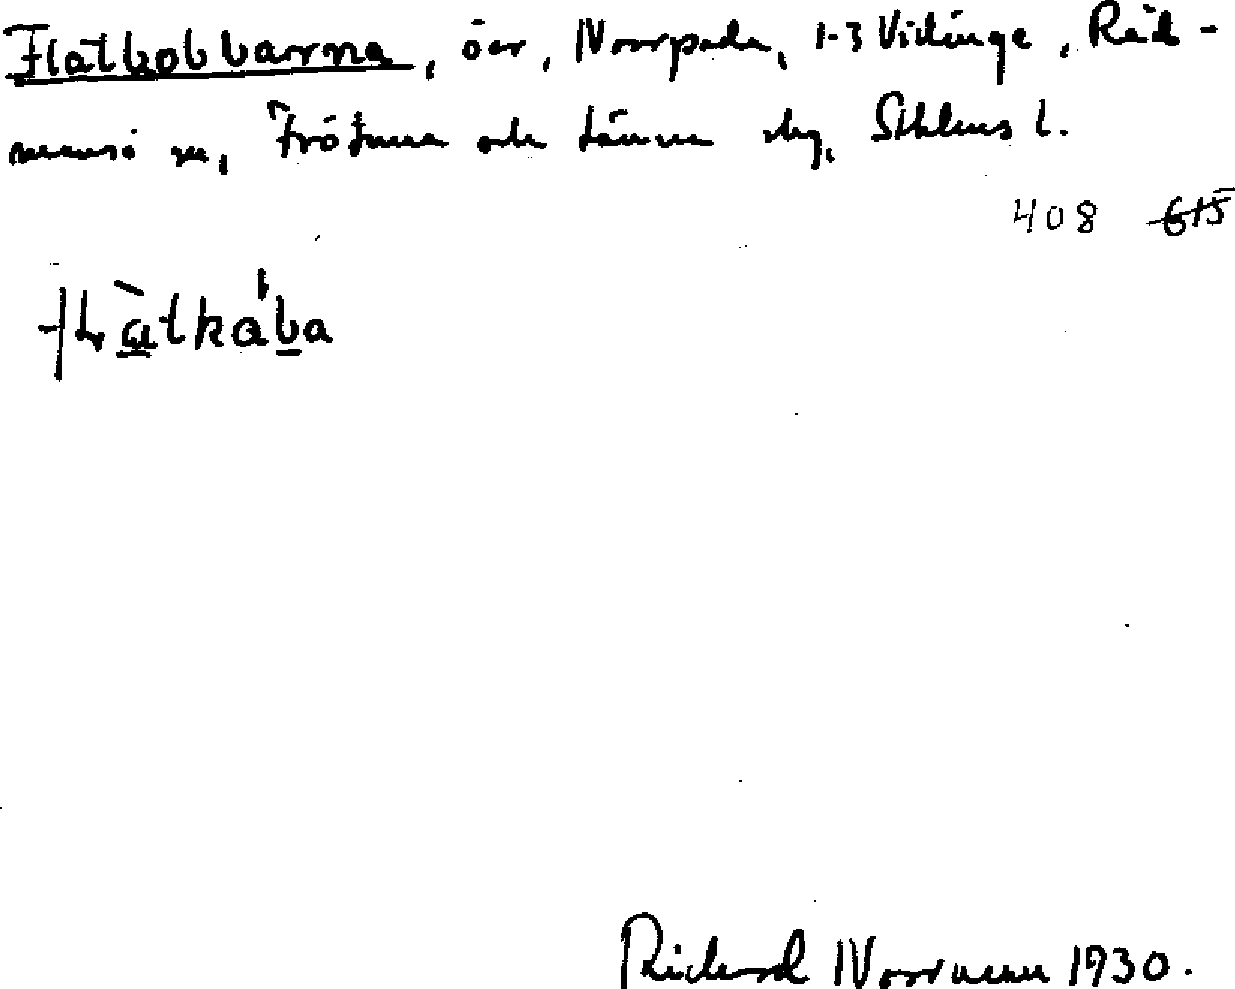 Flatkobbarna, öar, Norrpada, 1-3 Vidinge, Råd-
mansö sn, Frötuna och Länna skg, Sthlms l.
408 615
flàtkåba
Richard Norrman 1930.